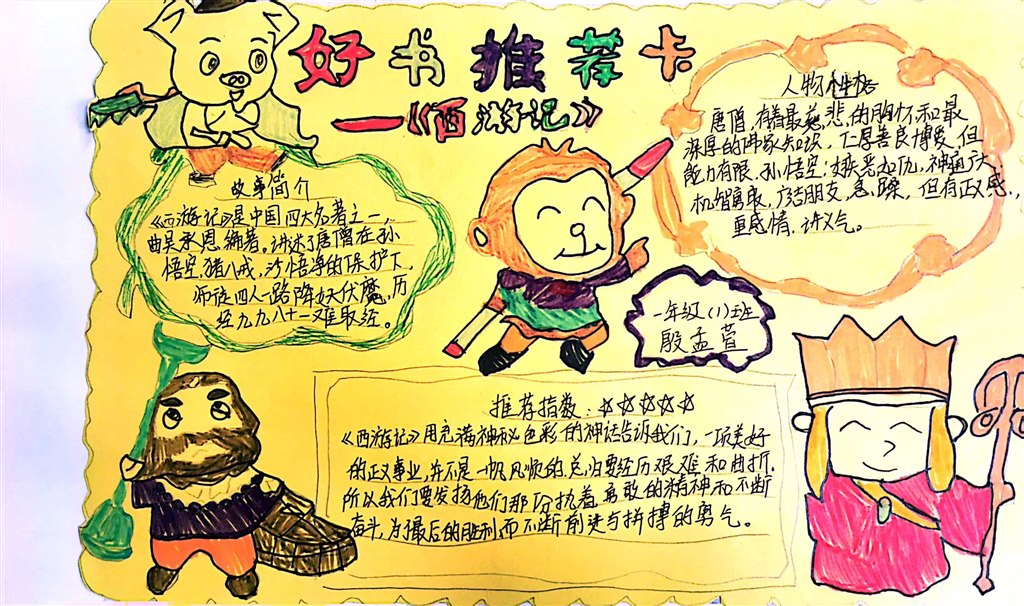 好书推荐卡
—《西游记》
故事简介
《西游记》是中国四大名著之一,
由吴承恩编著。讲述了唐僧在孙
悟空,猪八戒,沙悟净的保护下,
师徒四人一路降妖伏魔,历
经九九八十一难取经。
人物性格
唐僧,有着最慈悲的胸怀和最
深厚的佛家知识,仁厚善良博爱,但
能力有限。孙悟空:嫉恶如仇,神通广大
机智勇敢,广结朋友,急躁,但有正义感,
重感情,讲义气。
一年级(1)班
殷孟萱
推荐指数:☆☆☆☆☆
《西游记》用充满神秘色彩的神话告诉我们,一项美好
的正义事业,并不是一帆风顺的总归要经历艰难和曲折.
所以我们要发扬他们那份执着勇敢的精神和不断
奋斗,为最后的胜利而不断前进与拼搏的勇气。